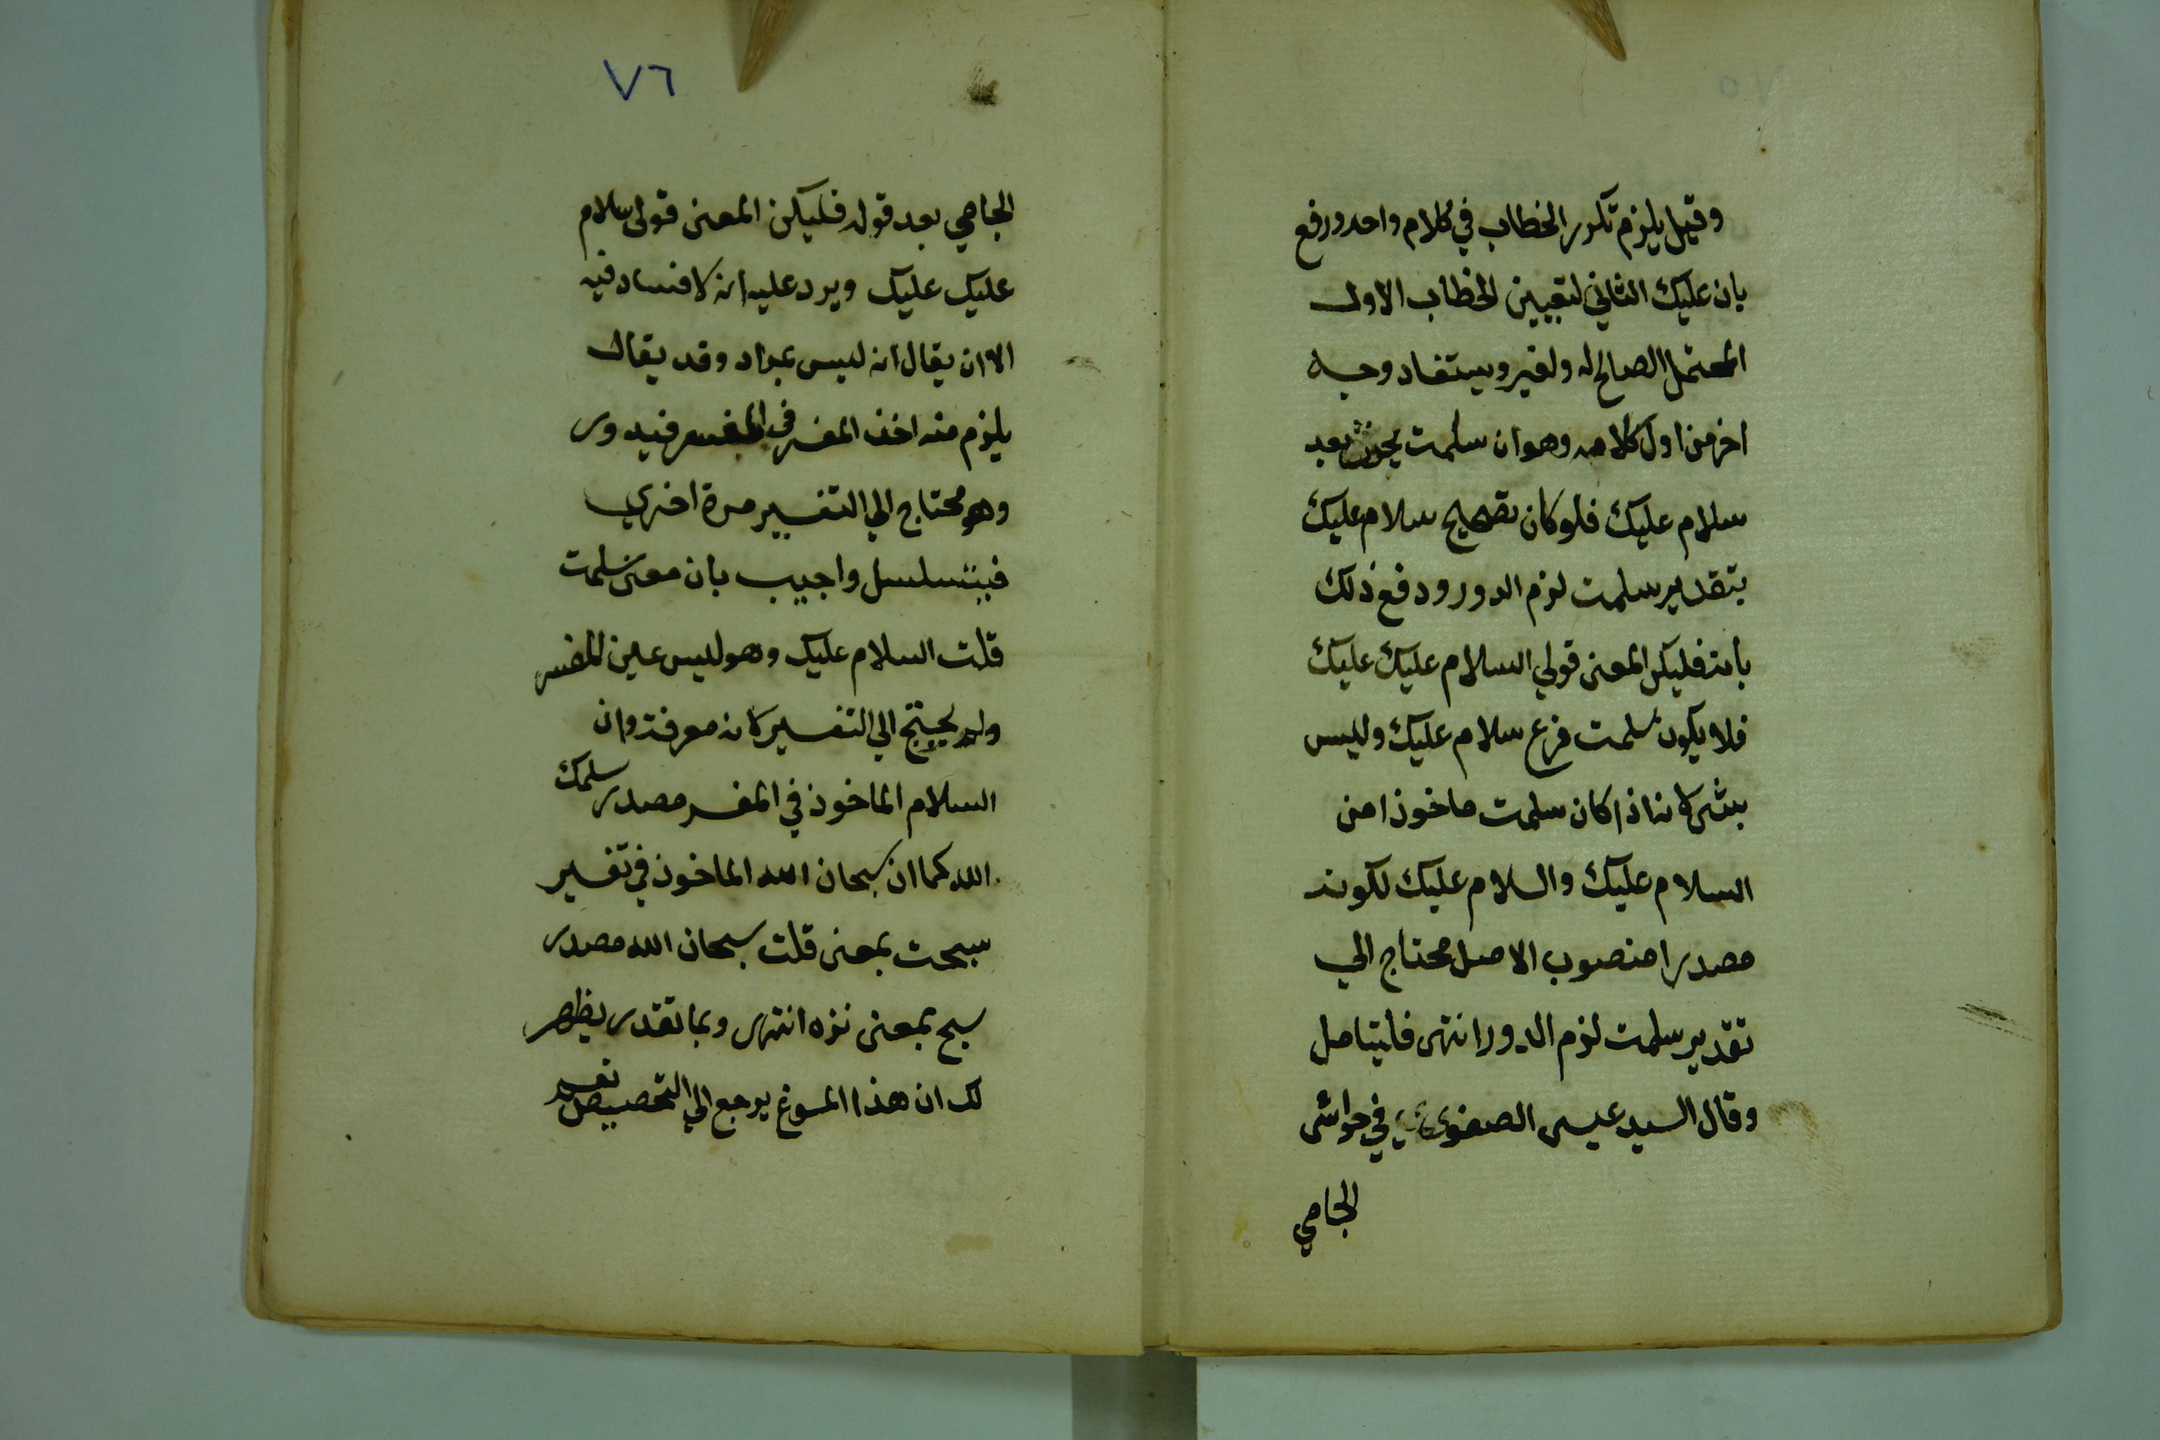 وقيل يلزم تكرر الخطاب في كلام واحد ورفع
بان عليك الثاني لتعيين الخطاب الاول
المحتمل الصالح له ولغيره ويستفاد وجه
اخر من اول كلامه وهو ان سلمت يحدث بعد
سلام عليك فلو كان تصحيح سلام عليك
بتقدير سلمت لزم الدور ودفع ذلك
بانه فليكن المعنى قولي السلام عليك عليك
فلا يكون سلمت فرع سلام عليك وليس
بشى لانه اذا كان سلمت ماخوذا من
السلام عليك والسلام عليك لكونه
مصدرا منصوب الاصل محتاج الي
تقدير سلمت لزم الدور انتهى فليتامل
وقال السيد عيسى الصفوى في حواشى
الجامي
٧٦
الجامي بعد قوله فليكن المعنى قولى سلام
عليك عليك ويرد عليه انه لا فساد فيه
الا ان يقال انه ليس بمراد وقد يقال
يلزم منه اخذ المفسر في المفسر فيدور
وهو محتاج الي التفسير مرة اخري
فيتسلسل واجيب بان معنى سلمت
قلت السلام عليك وهو ليس عين المفسر
ولم يحتج الي التفسير لانه معرفة وان
السلام الماخوذ في المفسر مصدر سلمك
الله كما ان سبحان الله الماخوذ في تفسير
سبحت بمعنى قلت سبحان الله مصدر
سبح بمعنى نزه انتهى وبما تقدر يظهر
لك ان هذا المسوغ يرجع الي التخصيص